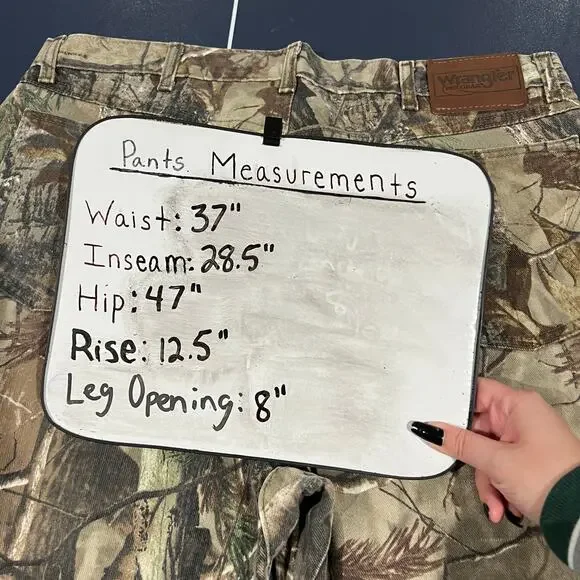 Wrangler
PROGEAR
Pants Measurements
Waist: 37"
Inseam: 28.5"
Hip: 47"
Rise: 12.5"
Leg Opening: 8"